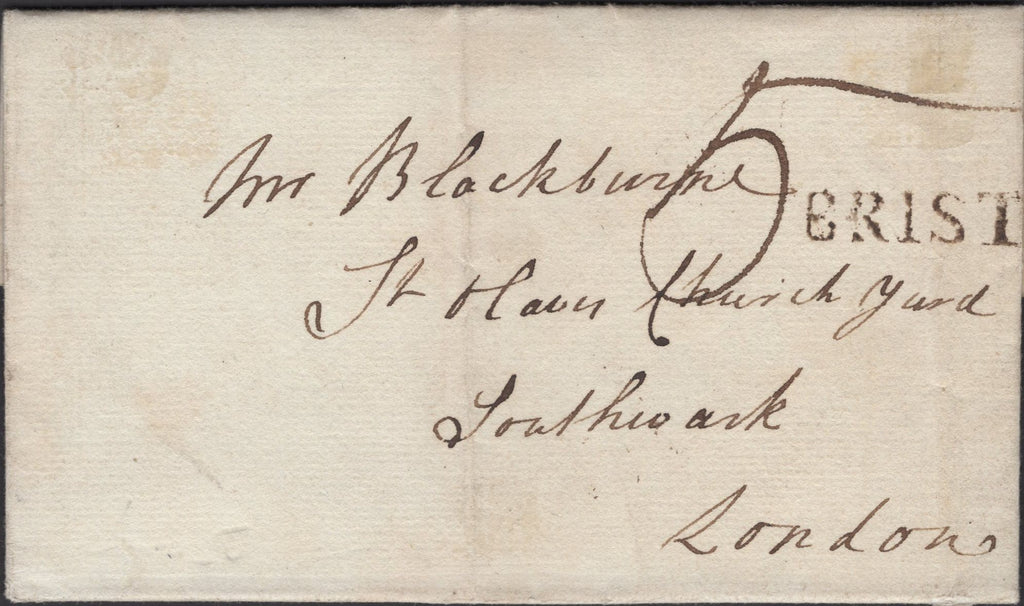 5
Mr Blackburne
BRIST
St Olaves Church Yard
Southwark
London